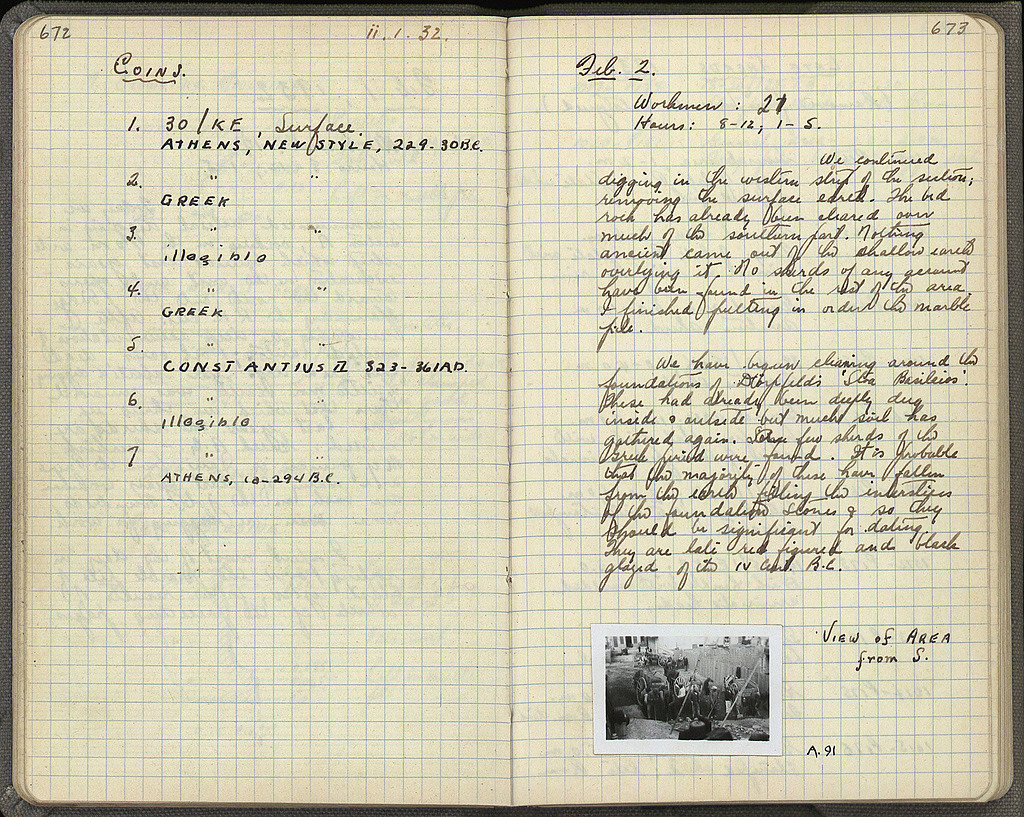 672
ii . 1 . 32.
COINS.
1. 30/KE , Surface.
ATHENS, NEW STYLE, 229-30 B.C.
2. " "
GREEK
3. " "
illegible
4. " "
GREEK
5. " "
CONSTANTIUS II 323-361 AD.
6. " "
illegible
7 " "
ATHENS, 10-294 B.C.
673
Feb. 2.
Workmen : 21
Hours: 8-12, 1-5.
We continued
digging in the western strip of the section,
removing the surface earth. The bed
rock has already been cleared over
much of the southern part. Nothing
ancient came out of the shallow earth
overlying it. No sherds of any account
have been found in the rest of the area.
I finished putting in order the marble
pile.
We have begun cleaning around the
foundations of Dörpfeld's 'Stoa Basileios'.
These had already been deeply dug
inside & outside but much soil has
gathered again. Some few sherds of the
Greek period were found. It is probable
that the majority of these have fallen
from the earth filling the interstices
of the foundation stones & so they
should be significant for dating.
They are late red figured and black
glazed of the IV cent. B.C.
VIEW OF AREA
from S.
A.91